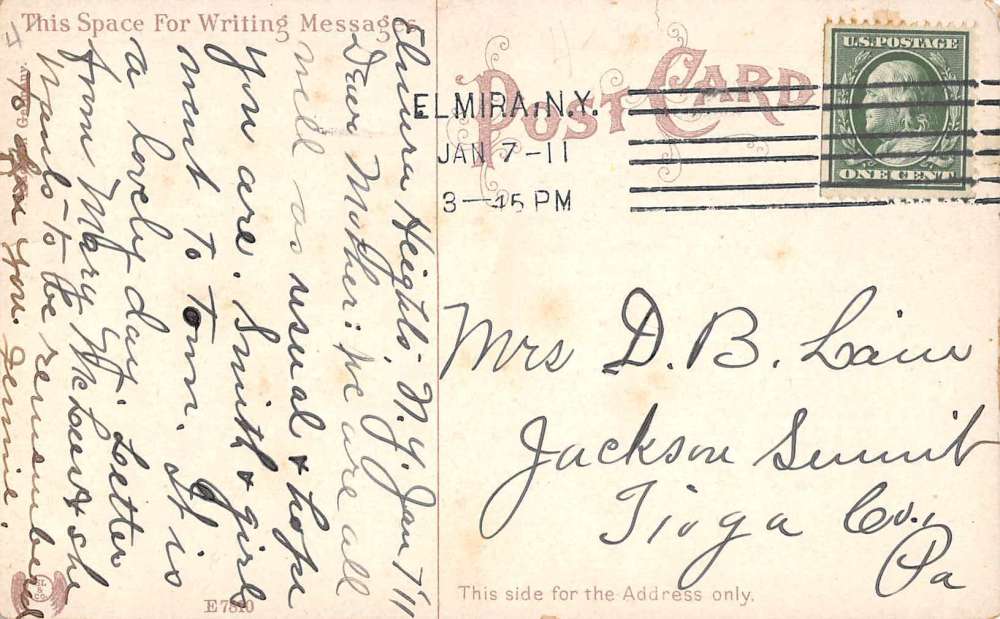 This Space For Writing Messages
Elmira Heights N.Y. Jan 7 '11
Dear Mother: We are all
well as usual & hope
you are. Smith & girls
went to town. It is
a lovely day. Letter
from Mary W. & she
wants to be remembered
to you. Jennie.
E 7810
POST CARD
ELMIRA, N.Y.
JAN 7-11
3-45 PM
U.S. POSTAGE
ONE CENT
Mrs D. B. Lain
Jackson Summit
Tioga Co.,
Pa
This side for the Address only.